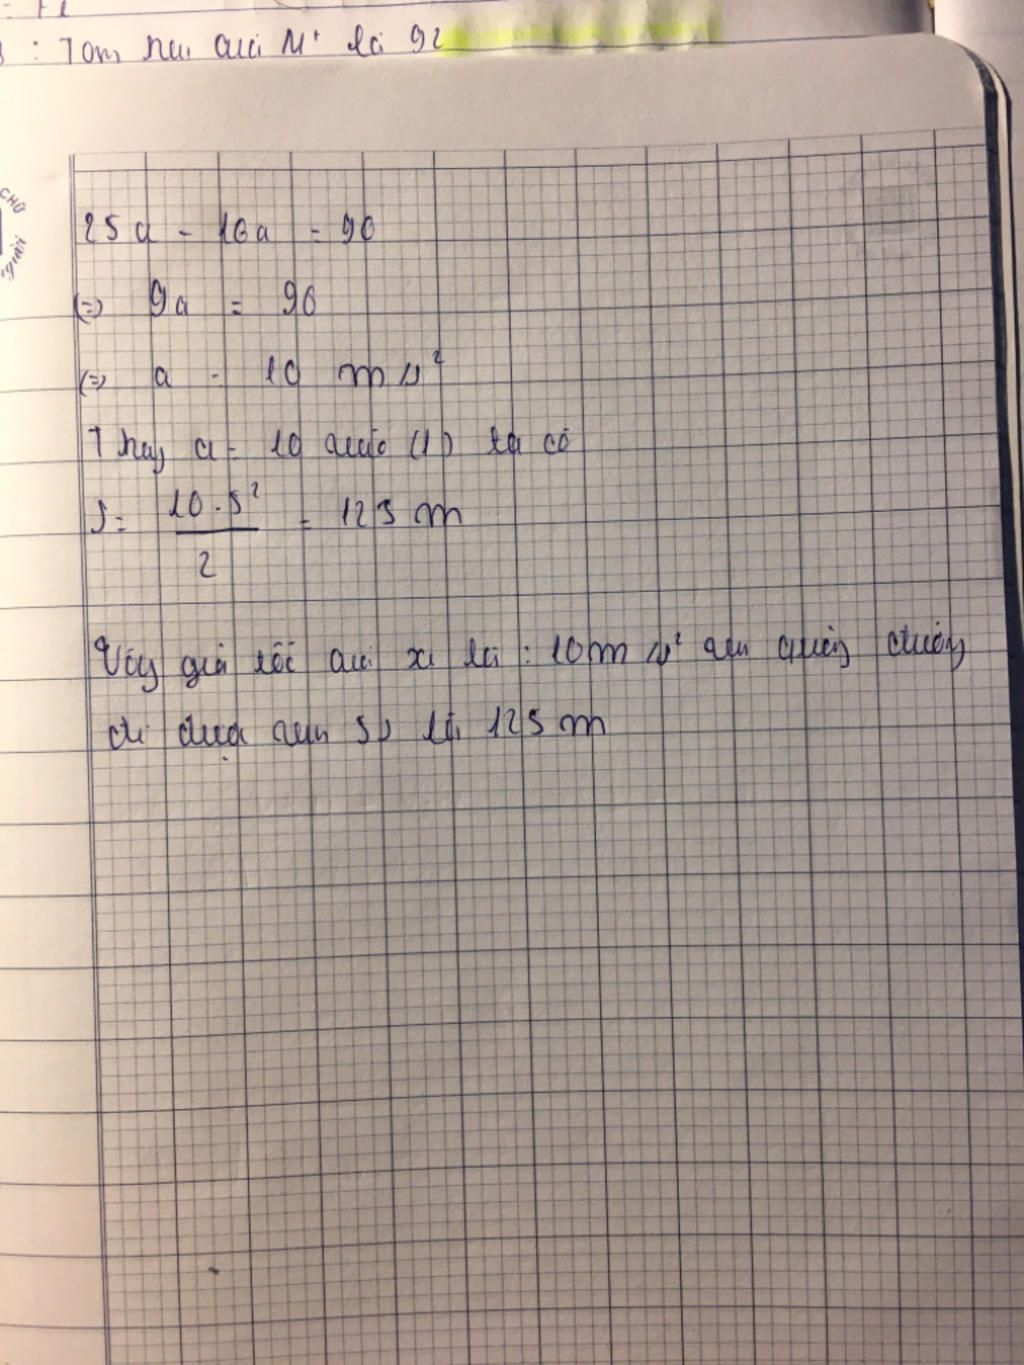 25a - 16a = 90
(=) 9a = 90
(=) a = 10 m/s²
Thay a = 10 vào (1) ta có
S = 10.5² / 2 = 125 m
Vậy gia tốc của xe là : 10m/s² quãng đường
đi được 5s là 125m